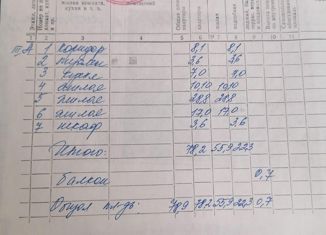 1 2 3 4 5 6 7 8 9 10 11
А 1 коридор 8,1 8,1
2 туалет 3,6 3,6
3 кухня 7,0 7,0
4 жилое 10,10 10,10
5 жилое 28,8 28,8
6 жилое 17,0 17,0
7 шкаф 3,6 3,6
Итого: 78,2 55,9 22,3
балкон 0,7
Общая пл-дь: 78,9 78,2 55,9 22,3 0,7